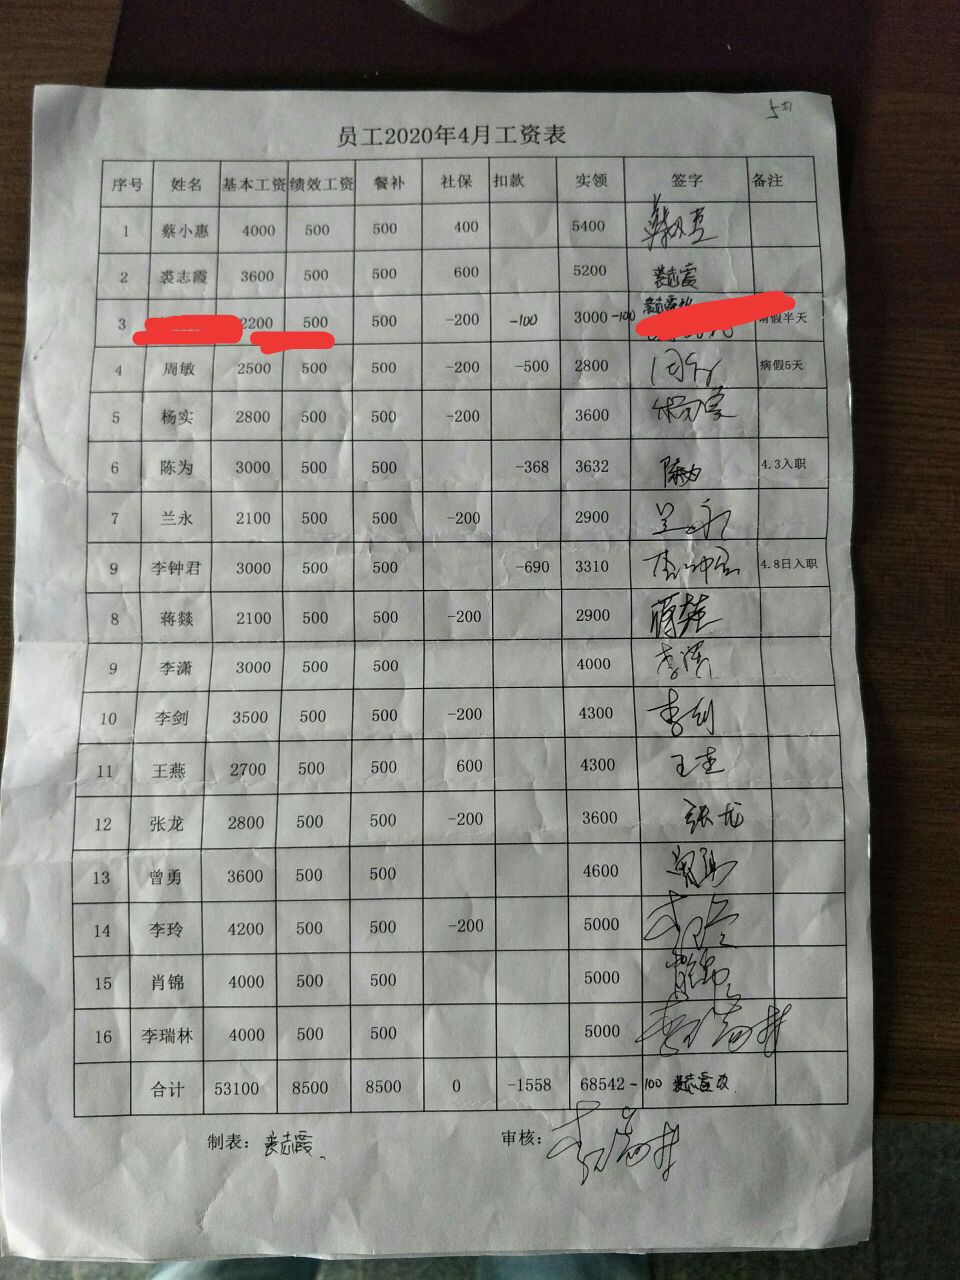 5月
员工2020年4月工资表
序号 姓名 基本工资 绩效工资 餐补 社保 扣款 实领 签字 备注
1 蔡小惠 4000 500 500 400 5400
2 裘志霞 3600 500 500 600 5200 裘志霞
3 2200 500 500 -200 -100 3000-100 裘志霞改 请假半天
4 周敏 2500 500 500 -200 -500 2800 周敏 病假5天
5 杨实 2800 500 500 -200 3600 杨实
6 陈为 3000 500 500 -368 3632 陈为 4.3入职
7 兰永 2100 500 500 -200 2900 兰永
9 李钟君 3000 500 500 -690 3310 李钟君 4.8日入职
8 蒋燚 2100 500 500 -200 2900
9 李潇 3000 500 500 4000 李潇
10 李剑 3500 500 500 -200 4300 李剑
11 王燕 2700 500 500 600 4300 王燕
12 张龙 2800 500 500 -200 3600 张龙
13 曾勇 3600 500 500 4600 曾勇
14 李玲 4200 500 500 -200 5000 李玲
15 肖锦 4000 500 500 5000 肖锦
16 李瑞林 4000 500 500 5000 李瑞林
合计 53100 8500 8500 0 -1558 68542-100 裘志霞改
制表：裘志霞 审核：李瑞林